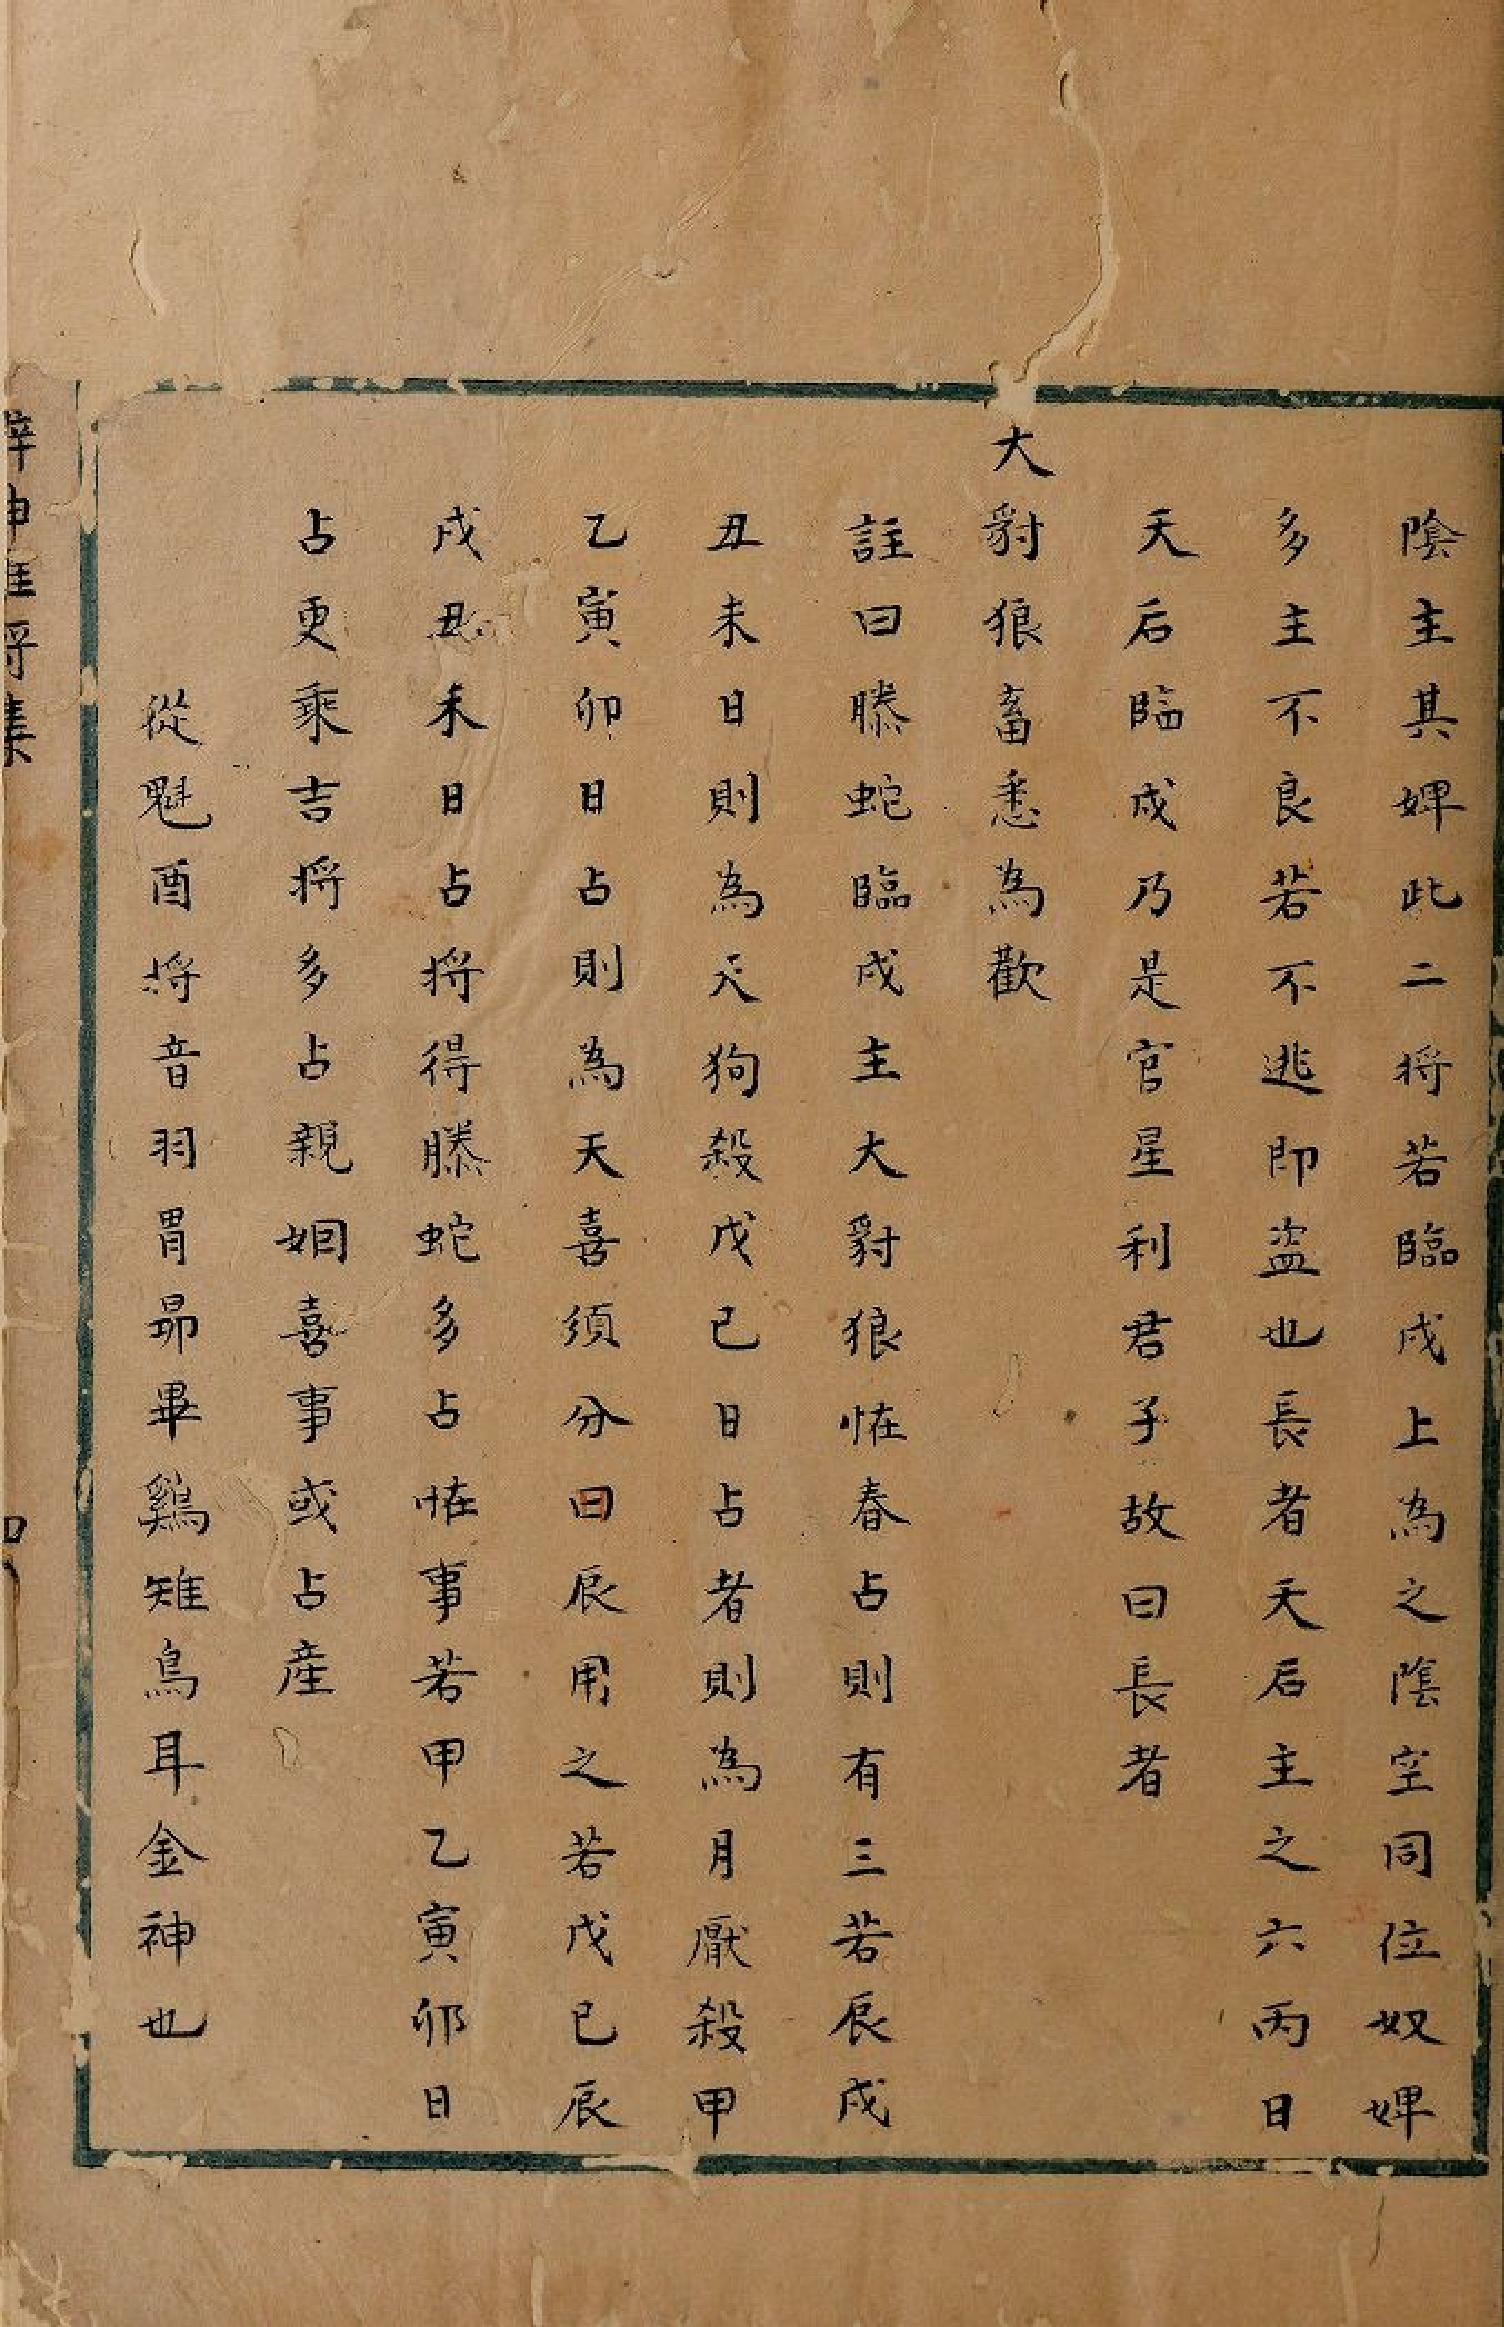 陰主其婢此二將若臨戌上為之陰空同位奴婢
多主不良若不逃即盜也長者天后主之六丙日
天后臨戌乃是官星利君子故曰長者
大豺狼畜悉為歡
註曰螣蛇臨戌主大豺狼恠春占則有三若辰戌
丑未日則為天狗殺戊己日占者則為月厭殺甲
乙寅卯日占則為天喜須分曰辰用之若戊己辰
戌丑未日占將得螣蛇多占恠事若甲乙寅卯日
占更乘吉將多占親姻喜事或占產
從魁酉將音羽胃昴畢鷄雉鳥耳金神也